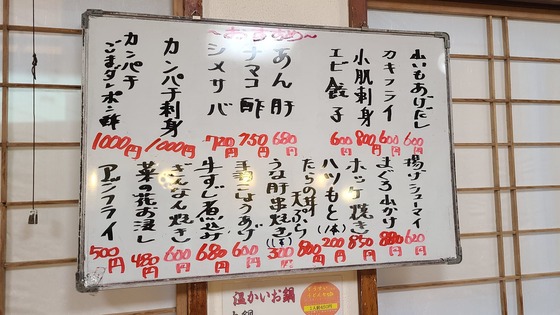 〜おすすめ〜
小いもあげだし
600円
カキフライ
600円
小肌刺身
800円
エビ餃子
600円
あん肝
680円
ナマコ酢
750円
シメサバ
720円
カンパチ刺身
1000円
カンパチ
ごまダレポン酢
1000円
揚げシューマイ
620円
まぐろ小かけ
880円
ホッケ焼き
850円
ハツもと(1本)
200円
たらの
天ぷら
800円
うな肝串焼き(1本)
300円
手羽
あげ
600円
牛すじ煮込み
680円
ぎんなん焼き
600円
菜の花お浸し
480円
アジフライ
500円
温かいお鍋